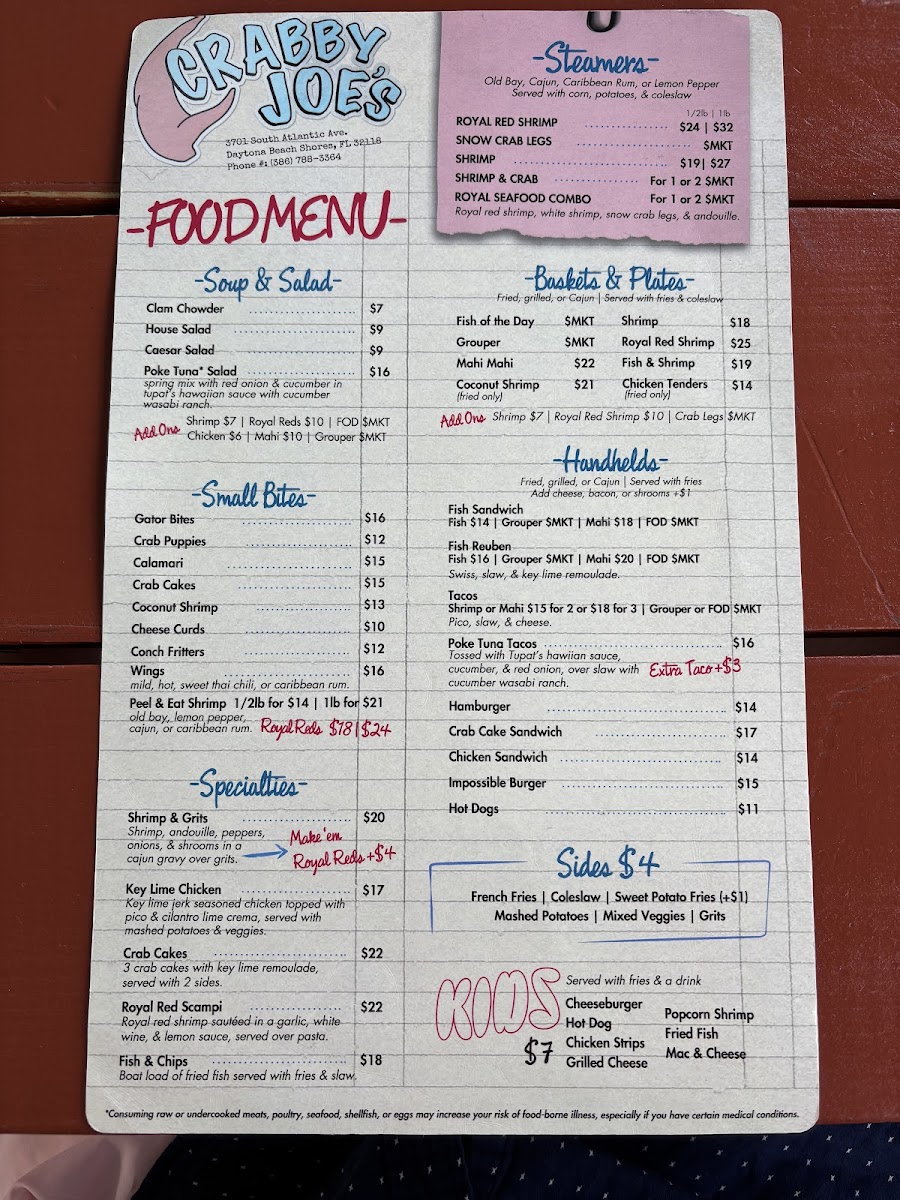 CRABBY
JOE'S
3701 South Atlantic Ave.
Daytona Beach Shores, FL 32118
Phone #: (386) 788-3364
-FOOD MENU-
-Steamers-
Old Bay, Cajun, Caribbean Rum, or Lemon Pepper
Served with corn, potatoes, & coleslaw
1/2lb | 1lb
ROYAL RED SHRIMP $24 | $32
SNOW CRAB LEGS $MKT
SHRIMP $19| $27
SHRIMP & CRAB For 1 or 2 $MKT
ROYAL SEAFOOD COMBO For 1 or 2 $MKT
Royal red shrimp, white shrimp, snow crab legs, & andouille.
-Soup & Salad-
Clam Chowder $7
House Salad $9
Caesar Salad $9
Poke Tuna* Salad $16
spring mix with red onion & cucumber in
tupat's hawaiian sauce with cucumber
wasabi ranch.
Add Ons Shrimp $7 | Royal Reds $10 | FOD $MKT
Chicken $6 | Mahi $10 | Grouper $MKT
-Small Bites-
Gator Bites $16
Crab Puppies $12
Calamari $15
Crab Cakes $15
Coconut Shrimp $13
Cheese Curds $10
Conch Fritters $12
Wings $16
mild, hot, sweet thai chili, or caribbean rum.
Peel & Eat Shrimp 1/2lb for $14 | 1lb for $21
old bay, lemon pepper,
cajun, or caribbean rum. Royal Reds $18 | $24
-Specialties-
Shrimp & Grits $20
Shrimp, andouille, peppers,
onions, & shrooms in a
cajun gravy over grits.
Make 'em
Royal Reds +$4
Key Lime Chicken $17
Key lime jerk seasoned chicken topped with
pico & cilantro lime crema, served with
mashed potatoes & veggies.
Crab Cakes $22
3 crab cakes with key lime remoulade,
served with 2 sides.
Royal Red Scampi $22
Royal red shrimp sautéed in a garlic, white
wine, & lemon sauce, served over pasta.
Fish & Chips $18
Boat load of fried fish served with fries & slaw.
-Baskets & Plates-
Fried, grilled, or Cajun | Served with fries & coleslaw
Fish of the Day $MKT Shrimp $18
Grouper $MKT Royal Red Shrimp $25
Mahi Mahi $22 Fish & Shrimp $19
Coconut Shrimp $21 Chicken Tenders $14
(fried only) (fried only)
Add Ons Shrimp $7 | Royal Red Shrimp $10 | Crab Legs $MKT
-Handhelds-
Fried, grilled, or Cajun | Served with fries
Add cheese, bacon, or shrooms +$1
Fish Sandwich
Fish $14 | Grouper $MKT | Mahi $18 | FOD $MKT
Fish Reuben
Fish $16 | Grouper $MKT | Mahi $20 | FOD $MKT
Swiss, slaw, & key lime remoulade.
Tacos
Shrimp or Mahi $15 for 2 or $18 for 3 | Grouper or FOD $MKT
Pico, slaw, & cheese.
Poke Tuna Tacos $16
Tossed with Tupat's hawiian sauce,
cucumber, & red onion, over slaw with
cucumber wasabi ranch.
Extra Taco +$3
Hamburger $14
Crab Cake Sandwich $17
Chicken Sandwich $14
Impossible Burger $15
Hot Dogs $11
Sides $4
French Fries | Coleslaw | Sweet Potato Fries (+$1)
Mashed Potatoes | Mixed Veggies | Grits
KIDS
$7
Served with fries & a drink
Cheeseburger
Hot Dog
Chicken Strips
Grilled Cheese
Popcorn Shrimp
Fried Fish
Mac & Cheese
*Consuming raw or undercooked meats, poultry, seafood, shellfish, or eggs may increase your risk of food-borne illness, especially if you have certain medical conditions.